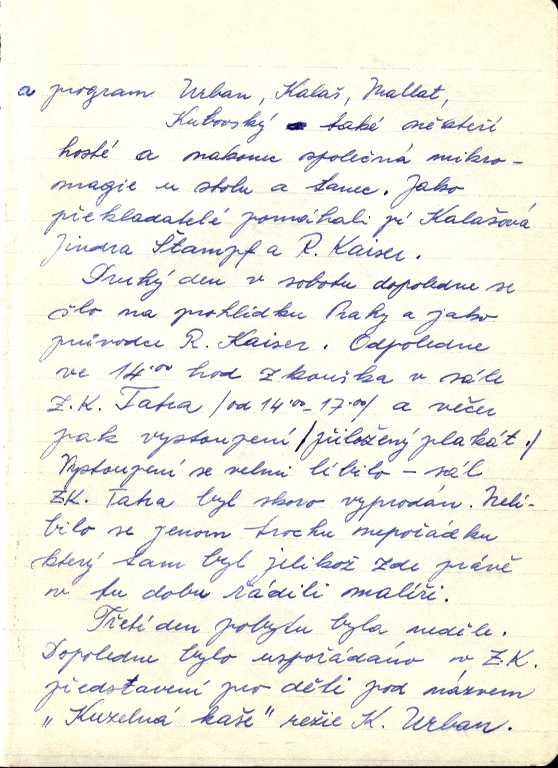 a program Urban, Kalaš, Mallat,
Kubovský také někteří
hosté a nakonec společná mikro-
magie u stolu a tanec. Jako
překladatelé pomáhali pí Kalašová
Jindra Štampf a R. Kaiser.
Druhý den v sobotu dopoledne se
šlo na prohlídku Prahy a jako
průvodce R. Kaiser. Odpoledne
ve 14.00 hod zkouška v sále
Z.K. Tatra /od 14.00-17.00/ a večer
pak vystoupení /přiložený plakát./
Vystoupení se velmi líbilo - sál
Z.K. Tatra byl skoro vyprodán. Nelí-
bilo se jenom trochu nepořádku
který tam byl jelikož zde právě
v tu dobu řádili malíři.
Třetí den pobytu byla neděle.
Dopoledne bylo uspořádáno v Z.K.
představení pro děti pod názvem
„Kuzelná kaše" režie K. Urban.